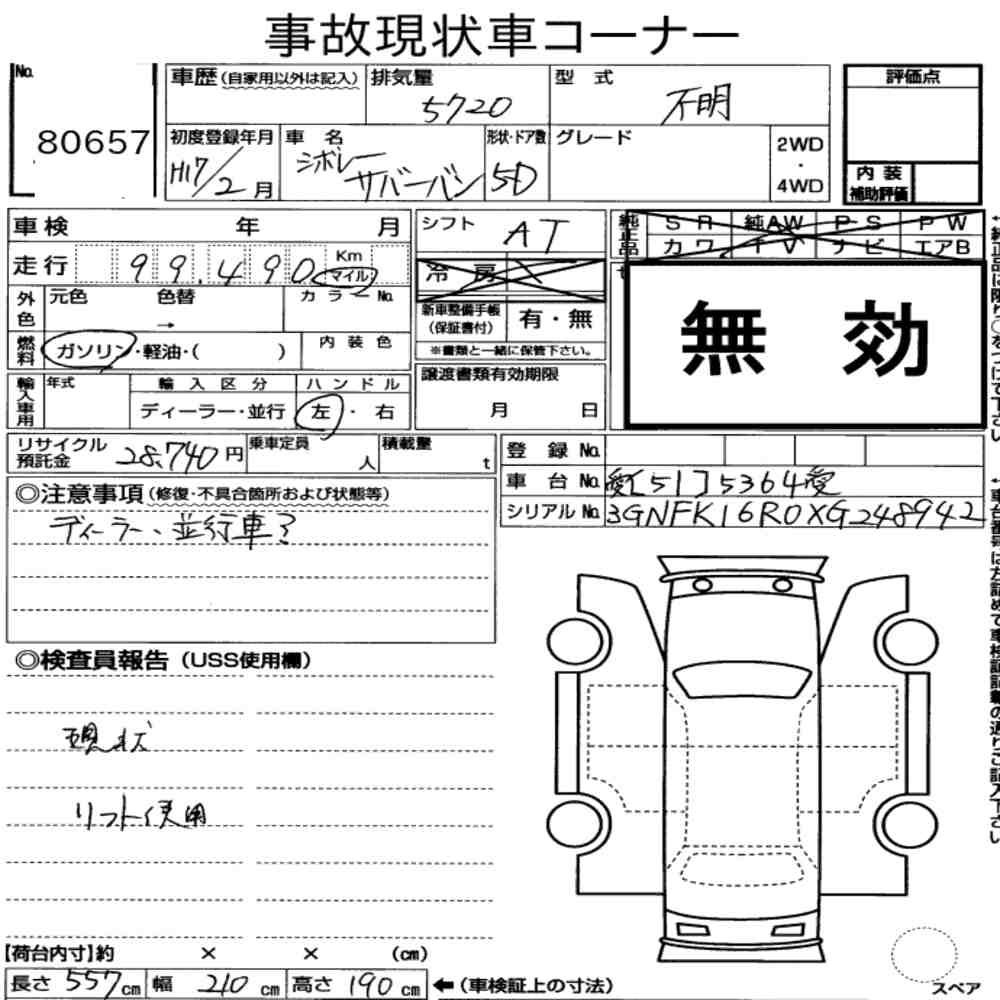 事故現状車コーナー
No.
80657
車歴 (自家用以外は記入)
排気量
5720
型 式
不明
評価点
初度登録年月
H17/2月
車 名
シボレー
サバーバン
形状・ドア数
5D
グレード
2WD
・
4WD
内 装
補助評価
車検 年 月
シフト
AT
純正品
S R 純AW P S P W
カワ T V ナビ エアB
走行 99,490 Km
マイル
冷 房
外色
元色 色替
→
カラーNo.
新車整備手帳
(保証書付)
有・無
※書類と一緒に保管下さい。
無 効
燃料
ガソリン・軽油・( )
内 装 色
輸入車用
年式
輸 入 区 分
ディーラー・並行
ハ ン ド ル
左 ・ 右
譲渡書類有効期限
月 日
リサイクル
預託金
28,740円
乗車定員
人
積載量
t
登 録 No.
車 台 No.
愛[51]5364愛
シリアルNo.
3GNFK16R0XG248942
◎注意事項 (修復・不具合箇所および状態等)
ディーラー、並行車?
◎検査員報告 (USS使用欄)
現状
リフト使用
【荷台内寸】約 × × (cm)
長さ 557cm 幅 210cm 高さ 190cm ←(車検証上の寸法)
スペア